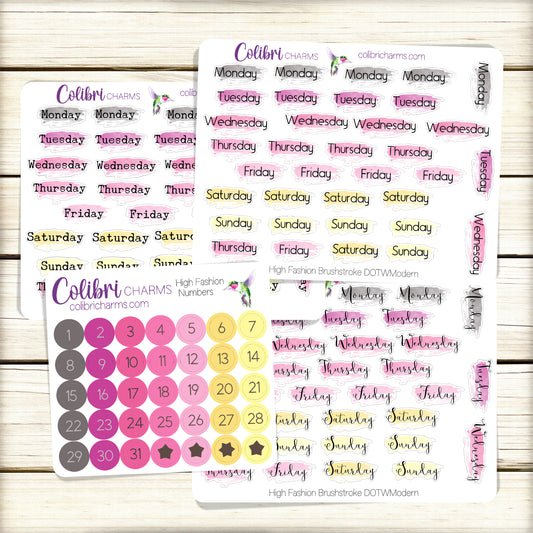 Colibri CHARMS
Monday Monday
Tuesday Tuesday Tuesday
Wednesday Wednesday
Thursday Thursday
Friday Friday
Saturday Saturday
Sunday Sunday
Colibri CHARMS
colibricharms.com
Monday Monday Monday Monday Monday
Tuesday Tuesday Tuesday Tuesday
Wednesday Wednesday Wednesday Wednesday
Thursday Thursday Thursday Thursday
Tuesday
Friday Friday Friday Friday
Saturday Saturday Saturday Saturday
Wednesday
Sunday Sunday Sunday Sunday
Thursday Friday Saturday Sunday
High Fashion Brushstroke DOTWModern
Colibri CHARMS
colibricharms.com
High Fashion
Numbers
1 2 3 4 5 6 7
8 9 10 11 12 13 14
15 16 17 18 19 20 21
22 23 24 25 26 27 28
29 30 31
Monday Monday Monday
Tuesday Tuesday
Wednesday Wednesday Wednesday
Thursday Thursday Thursday
Tuesday
Friday Friday Friday
Saturday Saturday Saturday
Wednesday
Sunday Sunday Sunday
Thursday Friday Saturday Sunday
High Fashion Brushstroke DOTWModern